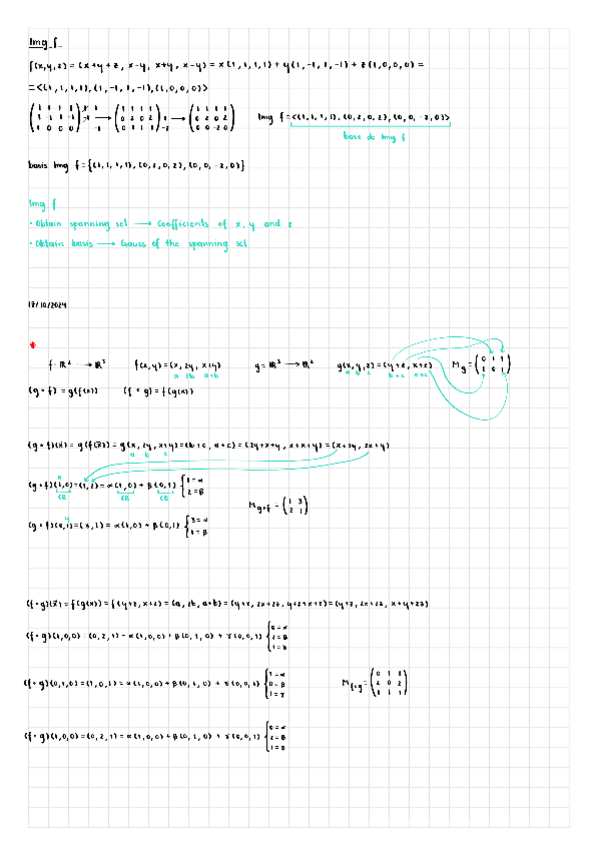 Img f
f(x,y,z) = (x+y+z, x-y, x+y, x-y) = x(1,1,1,1) + y(1,-1,1,-1) + z(1,0,0,0) =
= <(1,1,1,1), (1,-1,1,-1), (1,0,0,0)>
Img f = <(1,1,1,1), (0,2,0,2), (0,0,-2,0)>
base de Img f
basis Img f = {(1,1,1,1), (0,2,0,2), (0,0,-2,0)}
Img f
· Obtain spanning set → Coefficients of x, y and z
· Obtain basis → Gauss of the spanning set
17/10/2024
*
f: ℝ² → ℝ³ f(x,y) = (x, 2y, x+y) g = ℝ³ → ℝ² g(x,y,z) = (y+z, x+z) M_g = (0 1 1 / 1 0 1)
a 2b a+b a b c b+c a+c
(g∘f) = g(f(x)) (f∘g) = f(g(x))
(g∘f)(x̄) = g(f(x̄)) = g(x, 2y, x+y) = (b+c, a+c) = (2y+x+y, x+x+y) = (x+3y, 2x+y)
a b c
(g∘f)(1,0) = (1,2) = α(1,0) + β(0,1) { 1=α
2=β
M_g∘f = (1 3 / 2 1)
(g∘f)(0,1) = (3,1) = α(1,0) + β(0,1) { 3=α
1=β
(f∘g)(x̄) = f(g(x)) = f(y+z, x+z) = (a, 2b, a+b) = (y+z, 2x+2z, y+z+x+z) = (y+z, 2x+2z, x+y+2z)
(f∘g)(1,0,0) = (0,2,1) = α(1,0,0) + β(0,1,0) + γ(0,0,1) { 0=α
2=β
1=γ
(f∘g)(0,1,0) = (1,0,1) = α(1,0,0) + β(0,1,0) + γ(0,0,1) { 1=α
0=β
1=γ
M_f∘g
(f∘g)(1,0,0) = (0,2,1) = α(1,0,0) + β(0,1,0) + γ(0,0,1) { 0=α
2=β
1=γ